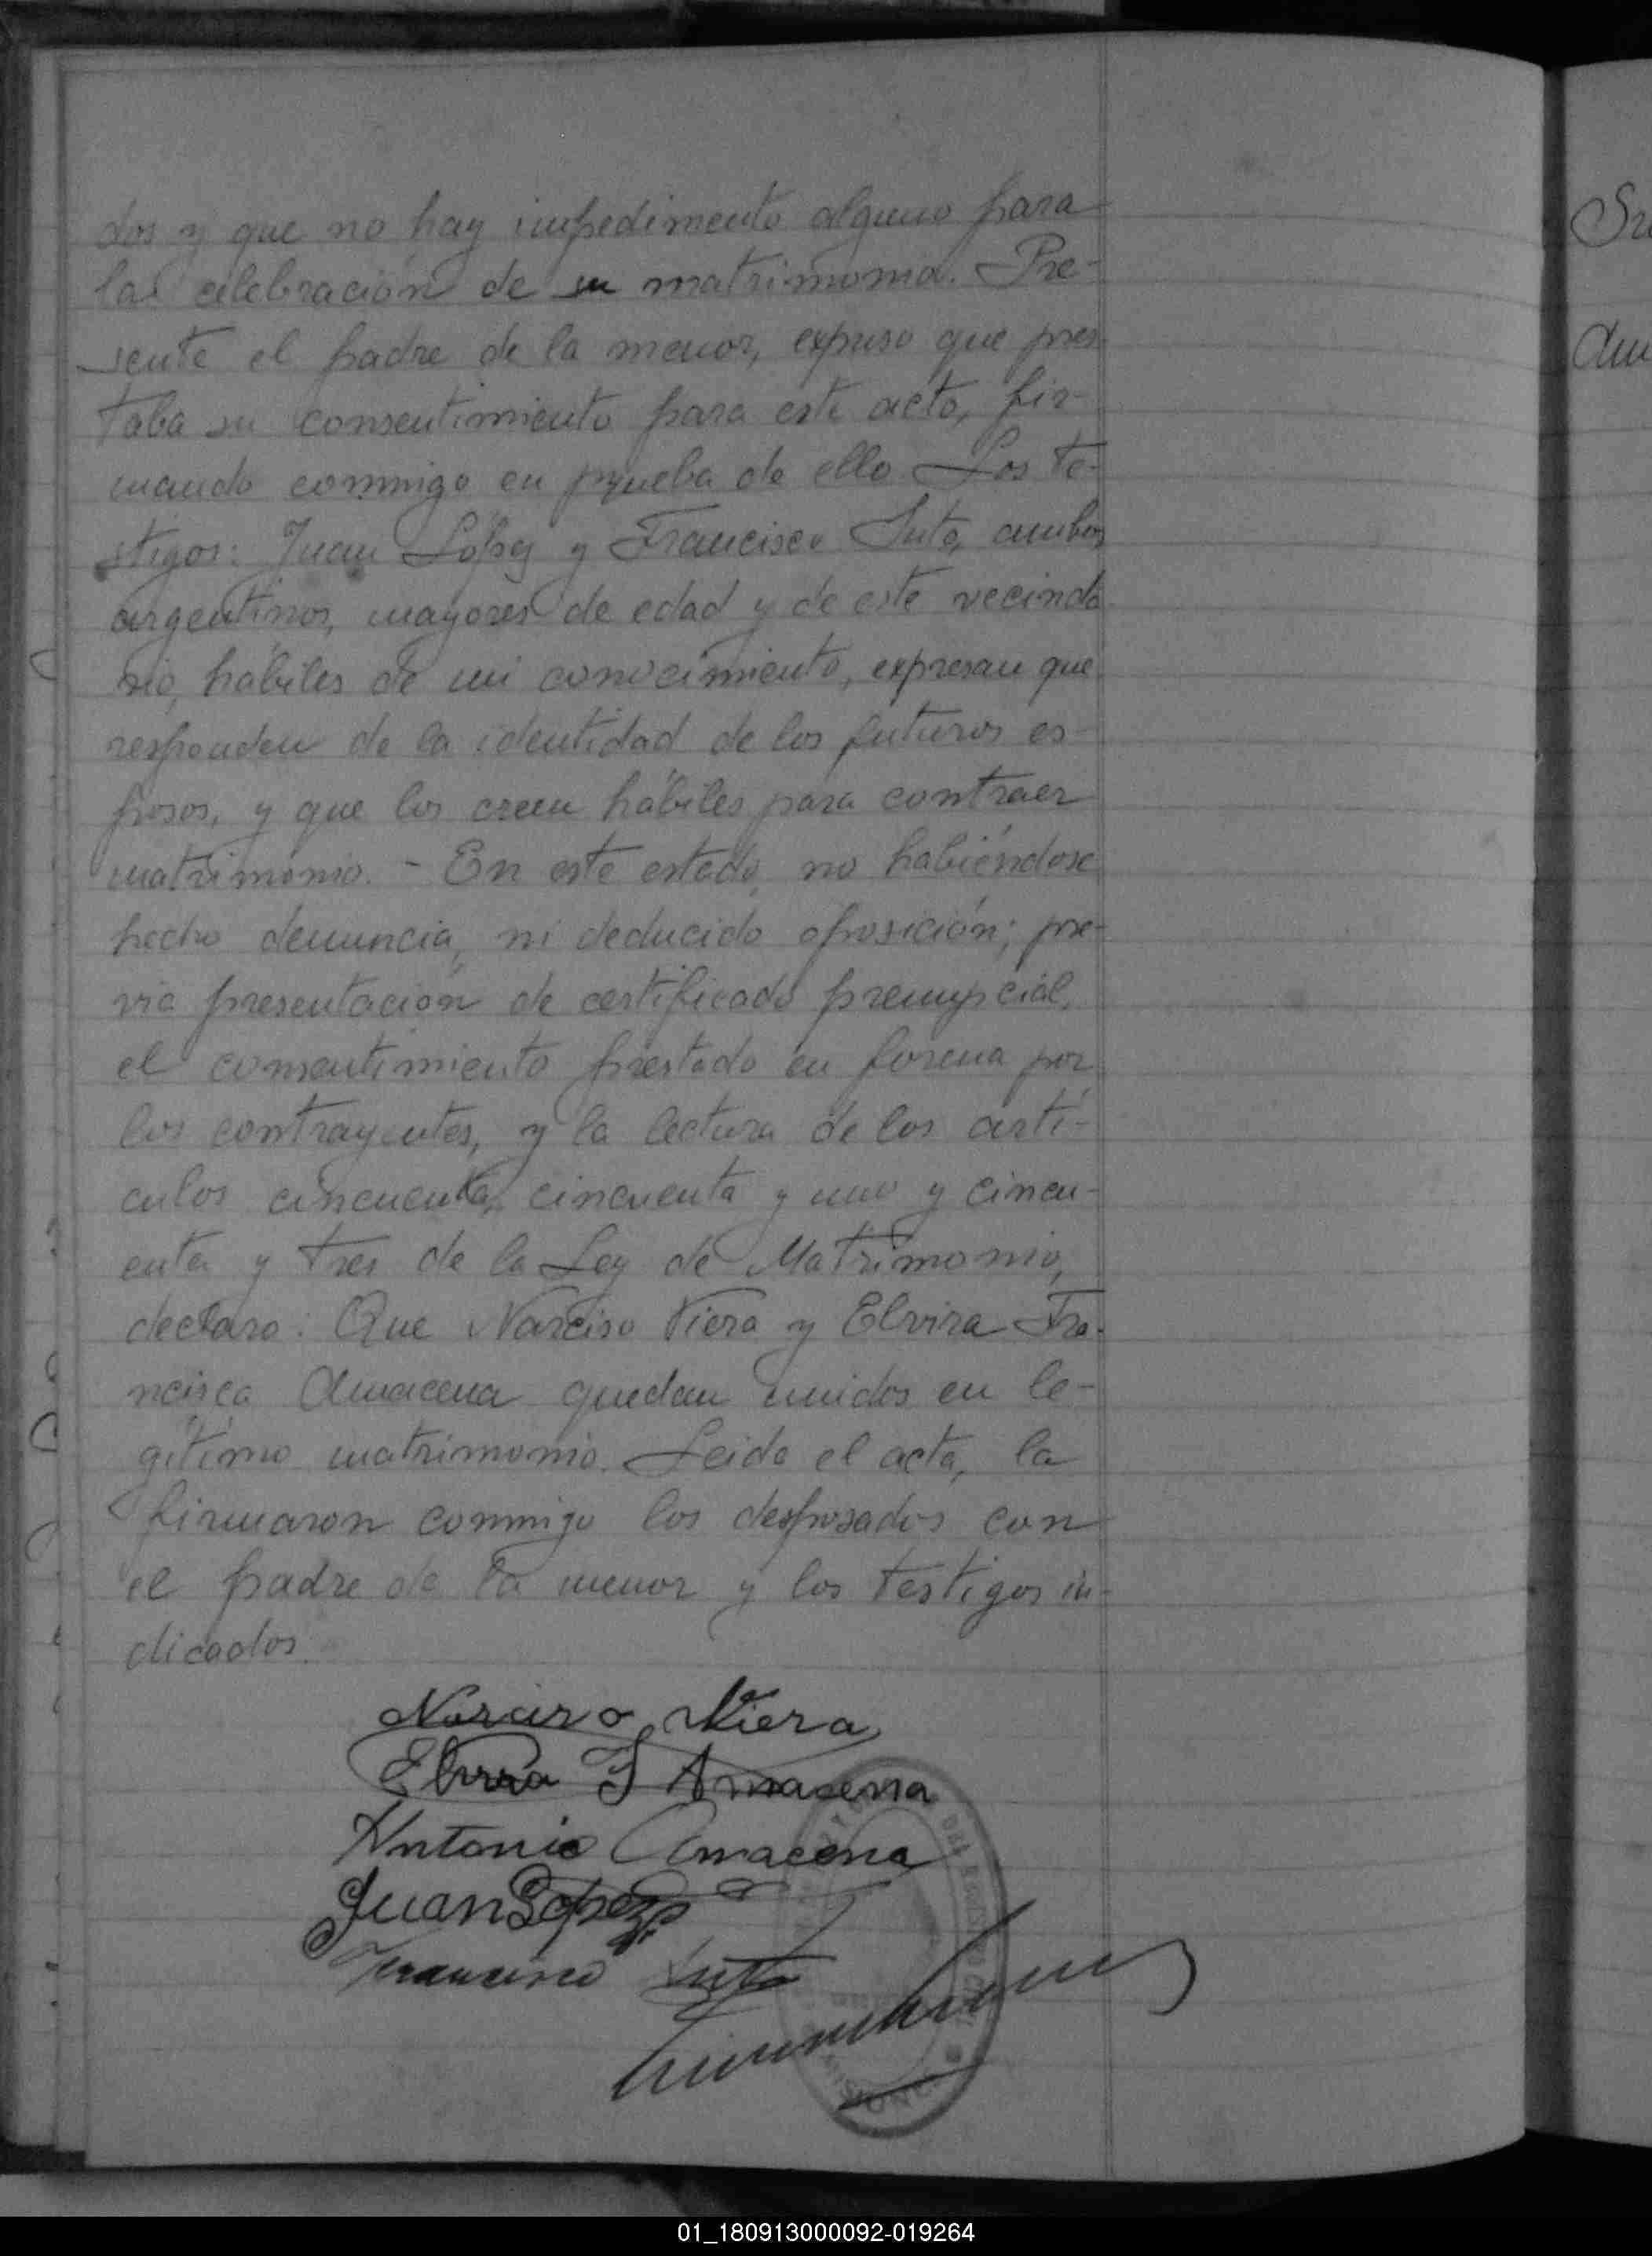 dos y que no hay impedimento alguno para
la celebración de su matrimonio. Pre-
sente el padre de la menor, expuso que pres-
taba su consentimiento para este acto, fir-
mando conmigo en prueba de ello. Los te-
stigos: Juan López y Francisco Suto, ambos
argentinos, mayores de edad y de este vecinda
rio, hábiles de mi conocimiento, expresan que
responden de la identidad de los futuros es-
posos, y que los creen hábiles para contraer
matrimonio. - En este estado, no habiéndose
hecho denuncia, ni deducido oposición; pre-
via presentación de certificado prenupcial,
el consentimiento prestado en forma por
los contrayentes, y la lectura de los artí-
culos cincuenta, cincuenta y uno y cincu-
enta y tres de la Ley de Matrimonio,
declaro: Que Narciso Viera y Elvira Fra-
ncisca Amacena quedan unidos en le-
gítimo matrimonio. Leida el acta, la
firmaron conmigo los desposados con
el padre de la menor y los testigos in-
dicados.
Narciso Viera
Elvira F Amacena
Antonio Amacena
Juan Lopez
Francisco Suto
DEL REGISTRO CIVIL
01_180913000092-019264